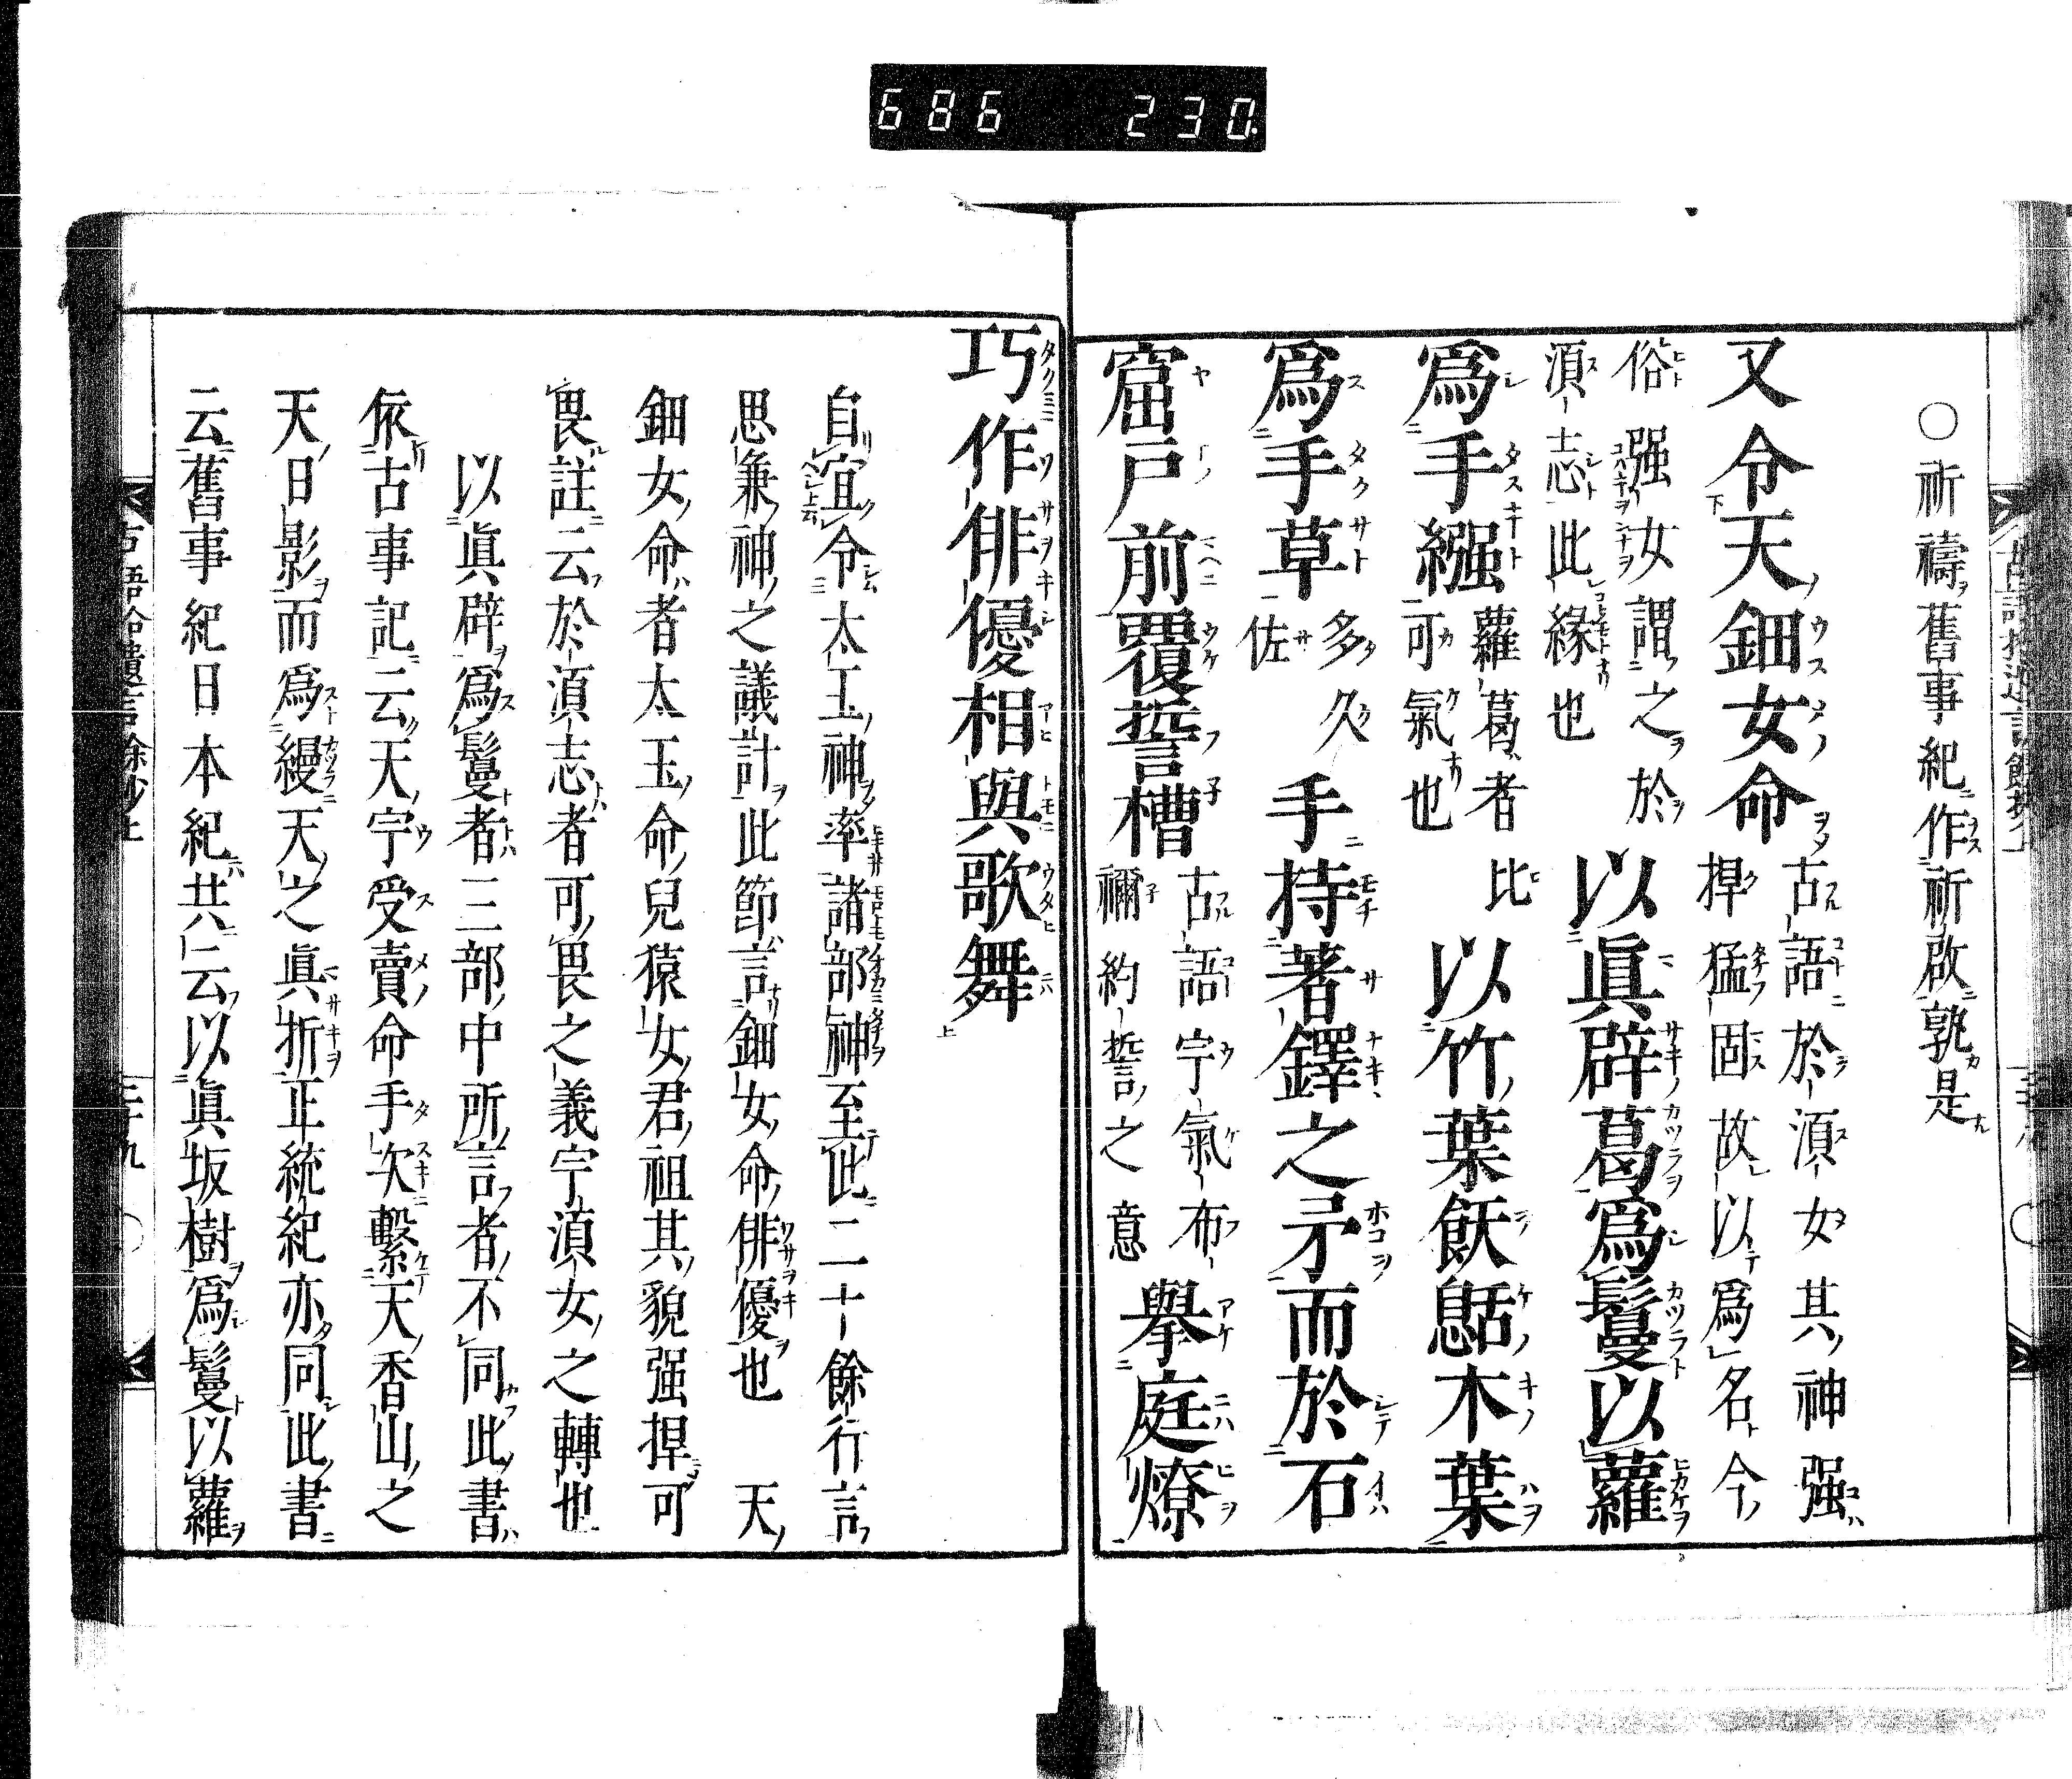 686 230.
○祈禱舊事紀作祈啟孰是
又令天鈿女命古語於湏女其神强
捍猛固故以爲名今
俗强女謂之於
湏志此緣也以眞辟葛爲鬘以蘿
爲手繦蘿葛者比
可氣也以竹葉飫憩木葉
爲手草多久
佐手持著鐸之矛而於石
窟戸前覆誓槽古語宇氣布
禰約誓之意擧庭燎
巧作俳優相與歌舞
自宜令太玉神率諸部神至此二十餘行言
思兼神之議計此節言鈿女命俳優也 天
鈿女命者太玉命兒猿女君祖其貌强捍可
畏註云於湏志者可畏之義宇湏女之轉也
以眞辟爲鬘者三部中所言者不同此書
依古事記云天宇受賣命手次繫天香山之
天日影而爲縵天之眞折正統紀亦同此書
云舊事紀日本紀共云以眞坂樹爲鬘以蘿
古語拾遺言餘抄上
二十九